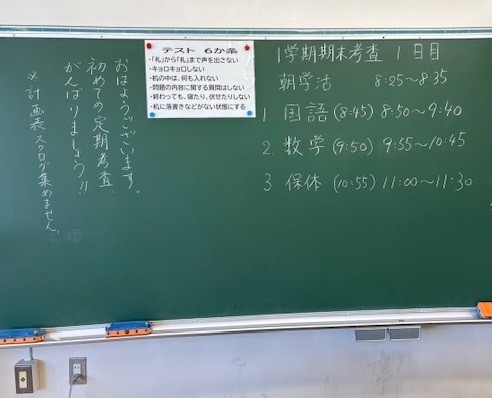 おはようございます。
初めての定期考査、
がんばりましょう!!
※計画表スクロが集めません。
テスト 6か条
・「礼」から「礼」まで声を出さない
・キョロキョロしない
・机の中は、何も入れない
・問題の内容に関する質問はしない
・終わっても、寝たり、伏せたりしない
・机に落書きなどがない状態にする
1学期期末考査 1日目
朝学活 8:25〜8:35
1 国語 (8:45) 8:50〜9:40
2. 数学 (9:50) 9:55〜10:45
3 保体 (10:55) 11:00〜11:30